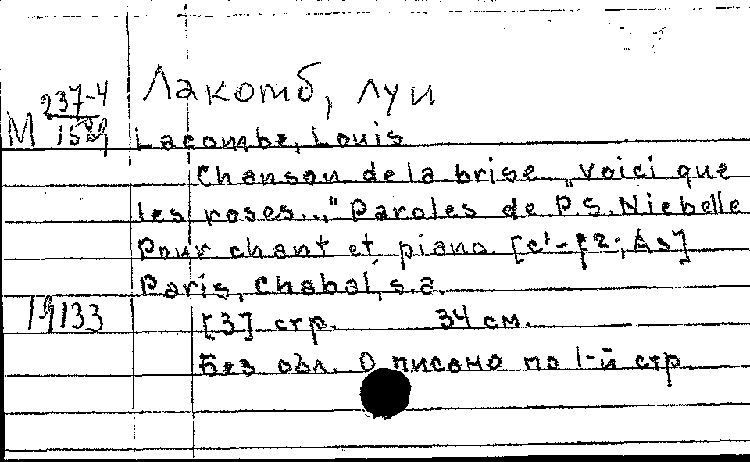 Лакомб, Луи
М 237-4
Lacombe, Louis
Chanson de la brise „Voici que
les roses..." Paroles de P.S. Niebelle
Pour chant et piano [c¹-f2; As]
Paris, Chabal, s.a.
19133 [3] стр. 34 см.
Без обл. Описано по 1-й стр